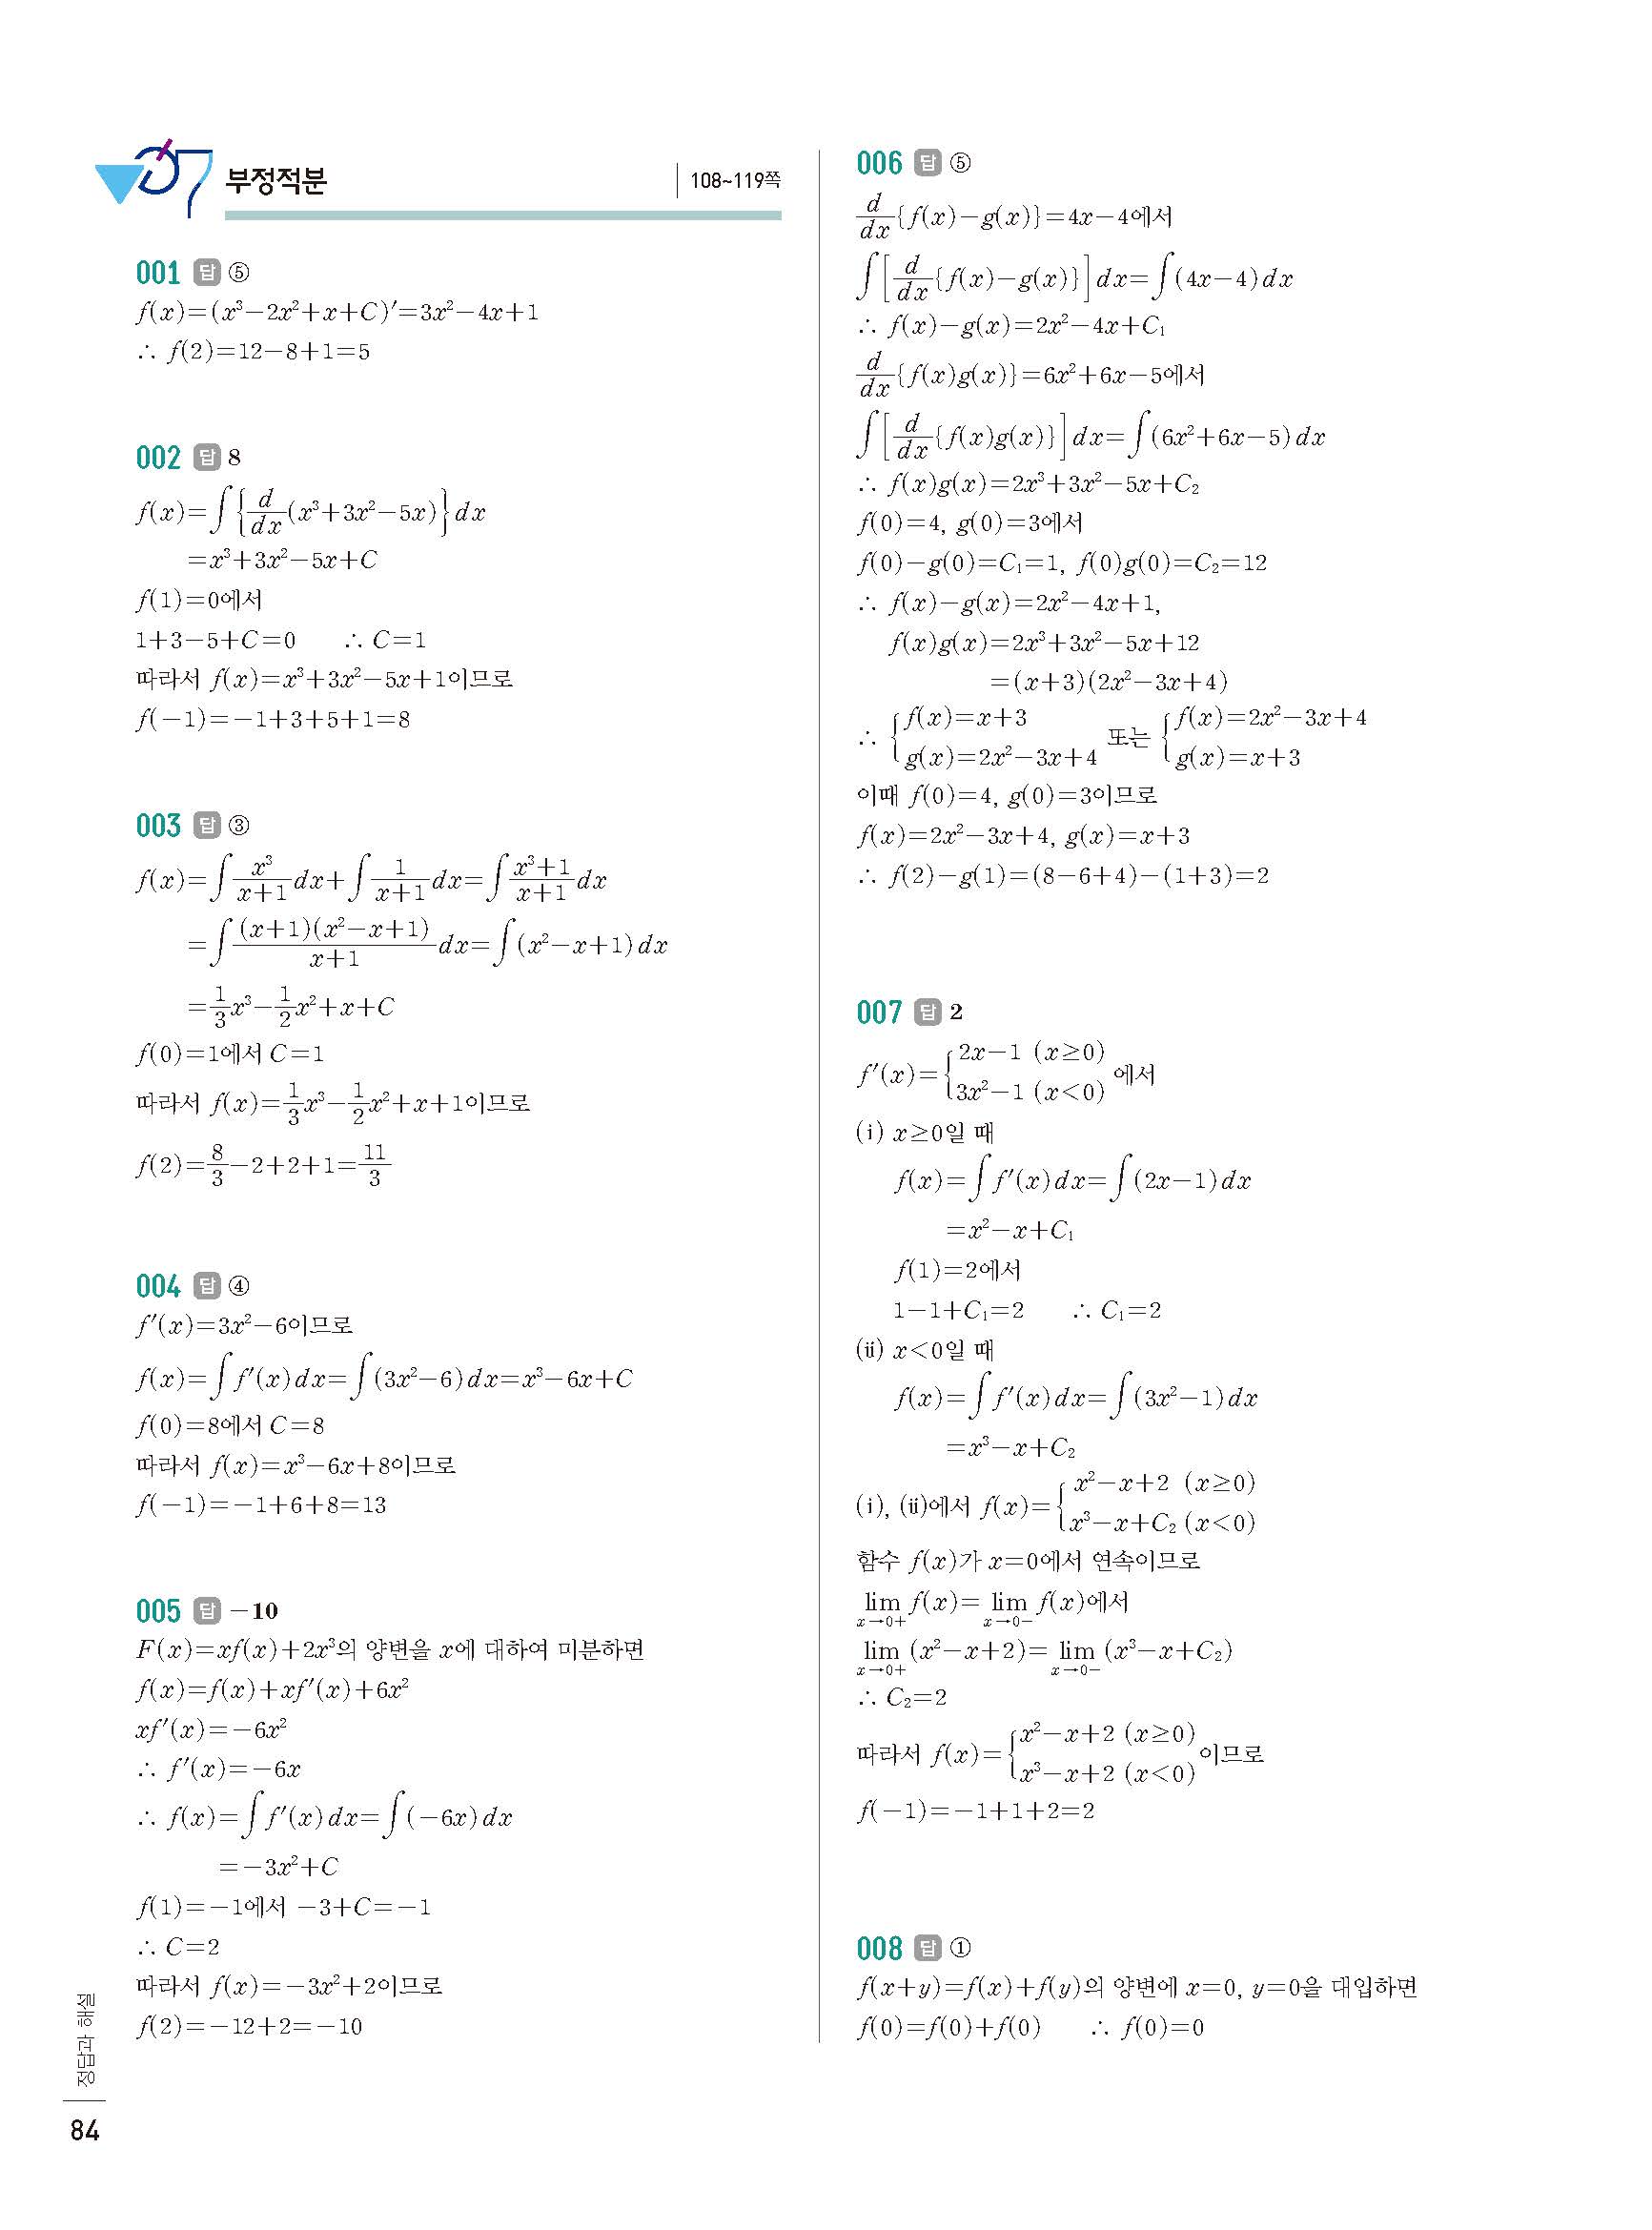 07 부정적분
108~119쪽
001 답 ⑤
f(x)=(x³-2x²+x+C)′=3x²-4x+1
∴ f(2)=12-8+1=5
002 답 8
f(x)=∫{d/dx(x³+3x²-5x)}dx
=x³+3x²-5x+C
f(1)=0에서
1+3-5+C=0 ∴ C=1
따라서 f(x)=x³+3x²-5x+1이므로
f(-1)=-1+3+5+1=8
003 답 ③
f(x)=∫x³/(x+1)dx+∫1/(x+1)dx=∫(x³+1)/(x+1)dx
=∫(x+1)(x²-x+1)/(x+1)dx=∫(x²-x+1)dx
=1/3x³-1/2x²+x+C
f(0)=1에서 C=1
따라서 f(x)=1/3x³-1/2x²+x+1이므로
f(2)=8/3-2+2+1=11/3
004 답 ④
f′(x)=3x²-6이므로
f(x)=∫f′(x)dx=∫(3x²-6)dx=x³-6x+C
f(0)=8에서 C=8
따라서 f(x)=x³-6x+8이므로
f(-1)=-1+6+8=13
005 답 -10
F(x)=xf(x)+2x³의 양변을 x에 대하여 미분하면
f(x)=f(x)+xf′(x)+6x²
xf′(x)=-6x²
∴ f′(x)=-6x
∴ f(x)=∫f′(x)dx=∫(-6x)dx
=-3x²+C
f(1)=-1에서 -3+C=-1
∴ C=2
따라서 f(x)=-3x²+2이므로
f(2)=-12+2=-10
006 답 ⑤
d/dx{f(x)-g(x)}=4x-4에서
∫[d/dx{f(x)-g(x)}]dx=∫(4x-4)dx
∴ f(x)-g(x)=2x²-4x+C₁
d/dx{f(x)g(x)}=6x²+6x-5에서
∫[d/dx{f(x)g(x)}]dx=∫(6x²+6x-5)dx
∴ f(x)g(x)=2x³+3x²-5x+C₂
f(0)=4, g(0)=3에서
f(0)-g(0)=C₁=1, f(0)g(0)=C₂=12
∴ f(x)-g(x)=2x²-4x+1,
f(x)g(x)=2x³+3x²-5x+12
=(x+3)(2x²-3x+4)
∴ {f(x)=x+3 또는 {f(x)=2x²-3x+4
g(x)=2x²-3x+4 g(x)=x+3
이때 f(0)=4, g(0)=3이므로
f(x)=2x²-3x+4, g(x)=x+3
∴ f(2)-g(1)=(8-6+4)-(1+3)=2
007 답 2
f′(x)={2x-1 (x≥0)
3x²-1 (x<0) 에서
(ⅰ) x≥0일 때
f(x)=∫f′(x)dx=∫(2x-1)dx
=x²-x+C₁
f(1)=2에서
1-1+C₁=2 ∴ C₁=2
(ⅱ) x<0일 때
f(x)=∫f′(x)dx=∫(3x²-1)dx
=x³-x+C₂
(ⅰ), (ⅱ)에서 f(x)={x²-x+2 (x≥0)
x³-x+C₂ (x<0)
함수 f(x)가 x=0에서 연속이므로
lim x→0+ f(x)= lim x→0- f(x)에서
lim x→0+ (x²-x+2)= lim x→0- (x³-x+C₂)
∴ C₂=2
따라서 f(x)={x²-x+2 (x≥0)
x³-x+2 (x<0) 이므로
f(-1)=-1+1+2=2
008 답 ①
f(x+y)=f(x)+f(y)의 양변에 x=0, y=0을 대입하면
f(0)=f(0)+f(0) ∴ f(0)=0
정답과 해설
84